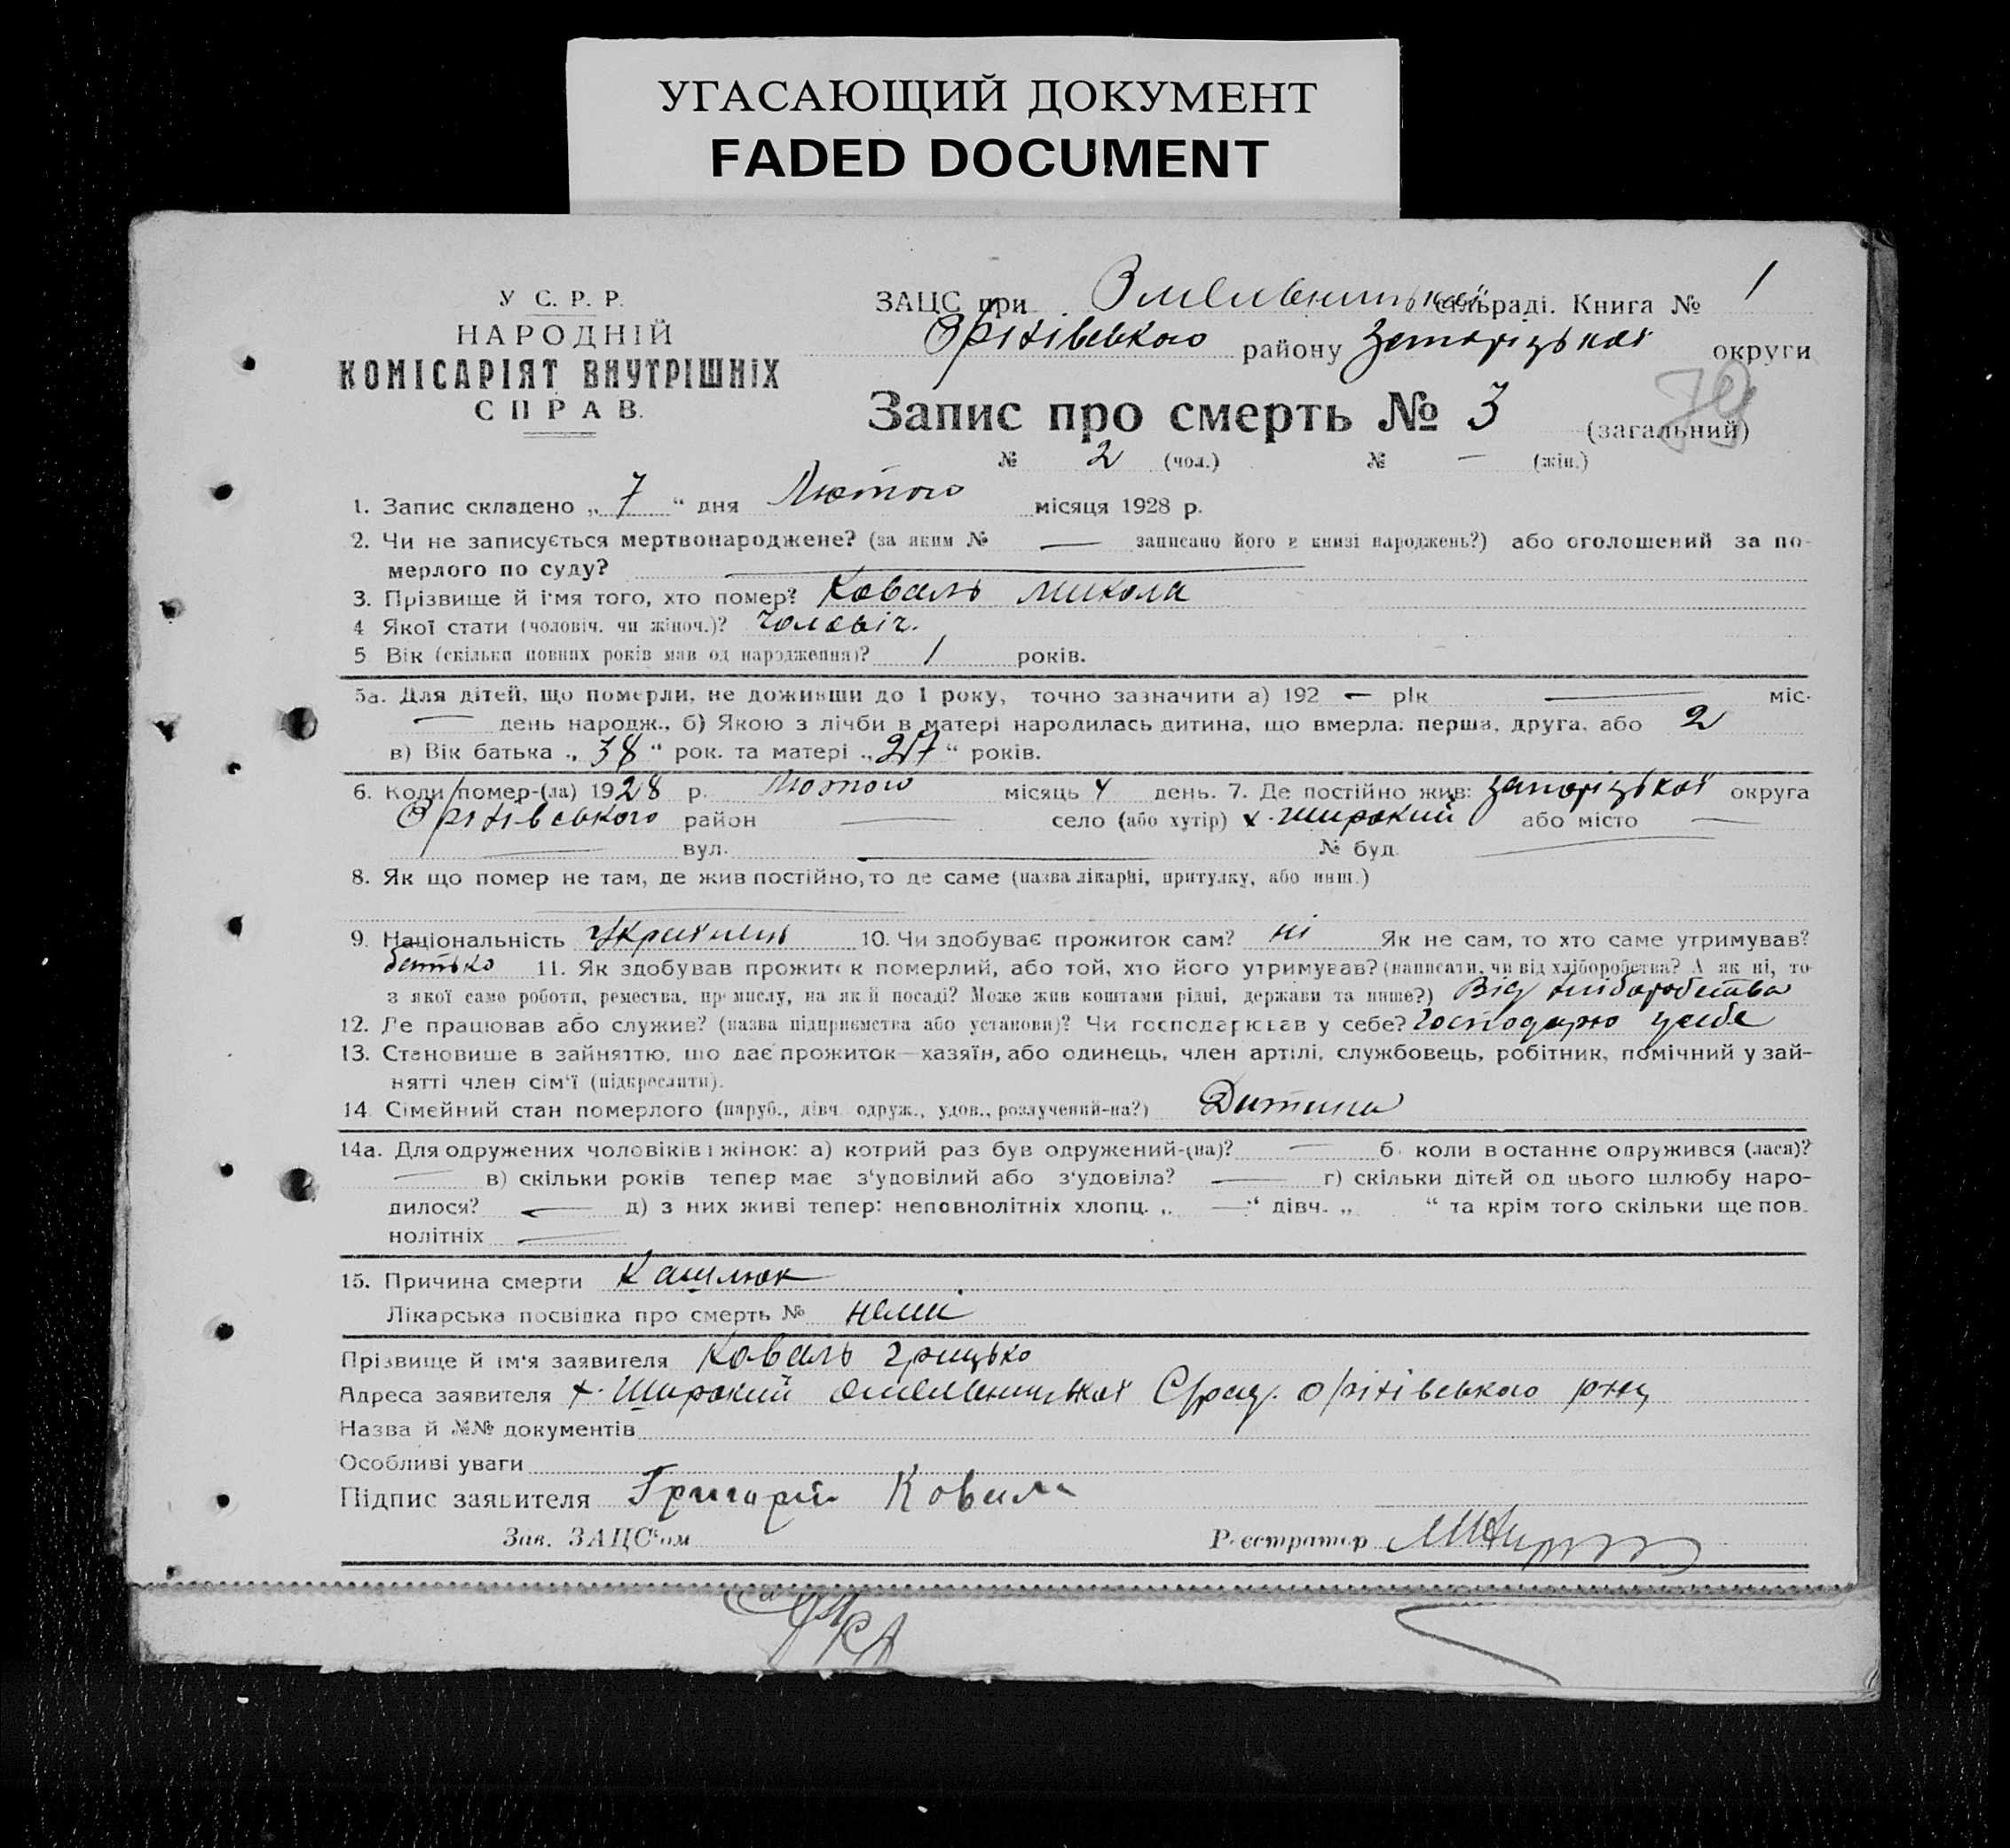 УГАСАЮЩИЙ ДОКУМЕНТ
FADED DOCUMENT
У С. Р. Р.
НАРОДНІЙ
КОМІСАРІЯТ ВНУТРІШНІХ
СПРАВ.
ЗАЦС при Омельницькій сільраді. Книга № 1
Оріхівського району Запоріцької округи
Запис про смерть № 3 (загальний)
№ 2 (чол.) № — (жін.)
1. Запис складено „ 7 “ дня Лютого місяця 1928 р.
2. Чи не записується мертвонароджене? (за яким № — записано його в книзі народжень?) або оголошений за по-
мерлого по суду? —
3. Прізвище й ім'я того, хто помер? Коваль Микола
4 Якої стати (чоловіч. чи жіноч.)? чоловіч.
5 Вік (скільки повних років мав од народження)? 1 років.
5а. Для дітей, що померли, не доживши до 1 року, точно зазначити а) 192 — рік — міс.
— день народж., б) Якою з лічби в матері народилась дитина, що вмерла: перша, друга, або 2
в) Вік батька „ 38 “ рок. та матері „ 27 “ років.
6. Коли помер-(ла) 1928 р. Лютого місяць 4 день. 7. Де постійно жив: Запоріцької округа
Оріхівського район — село (або хутір) х. Широкий або місто —
— вул. — № буд. —
8. Як що помер не там, де жив постійно, то де саме (назва лікарні, притулку, або инш.)
—
9. Національність Українець 10. Чи здобуває прожиток сам? ні Як не сам, то хто саме утримував?
батько 11. Як здобував прожиток померлий, або той, хто його утримував? (написати, чи від хліборобства? А як ні, то
з якої само роботи, ремества, промислу, на якій посаді? Може жив коштами рідні, держави та инше?) Від хліборобства
12. Де працював або служив? (назва підприємства або установи)? Чи господарював у себе? Господарю усебе
13. Становище в зайняттю, що дає прожиток—хазяїн, або одинець, член артілі, службовець, робітник, помічний у зай-
нятті член сім'ї (підкреслити).
14 Сімейний стан померлого (паруб., дівч. одруж., удов., розлучений-на?) Дитина
14а. Для одружених чоловіків і жінок: а) котрий раз був одружений-(на)? — б. коли в останнє одружився (лася)?
— в) скільки років тепер має з'удовілий або з'удовіла? — г) скільки дітей од цього шлюбу наро-
дилося? — д) з них живі тепер: неповнолітніх хлопц. „ — “ дівч. „ “ та крім того скільки ще пов.
нолітніх —
15. Причина смерти Кашлюк
Лікарська посвідка про смерть № нема
Прізвище й ім'я заявителя Коваль Грицько
Адреса заявителя х. Широкий Омельницької С/рад. Оріхівського р-ну
Назва й №№ документів
Особливі уваги
Підпис заявителя Григорій Коваль
Зав. ЗАЦС'ом Реєстратор